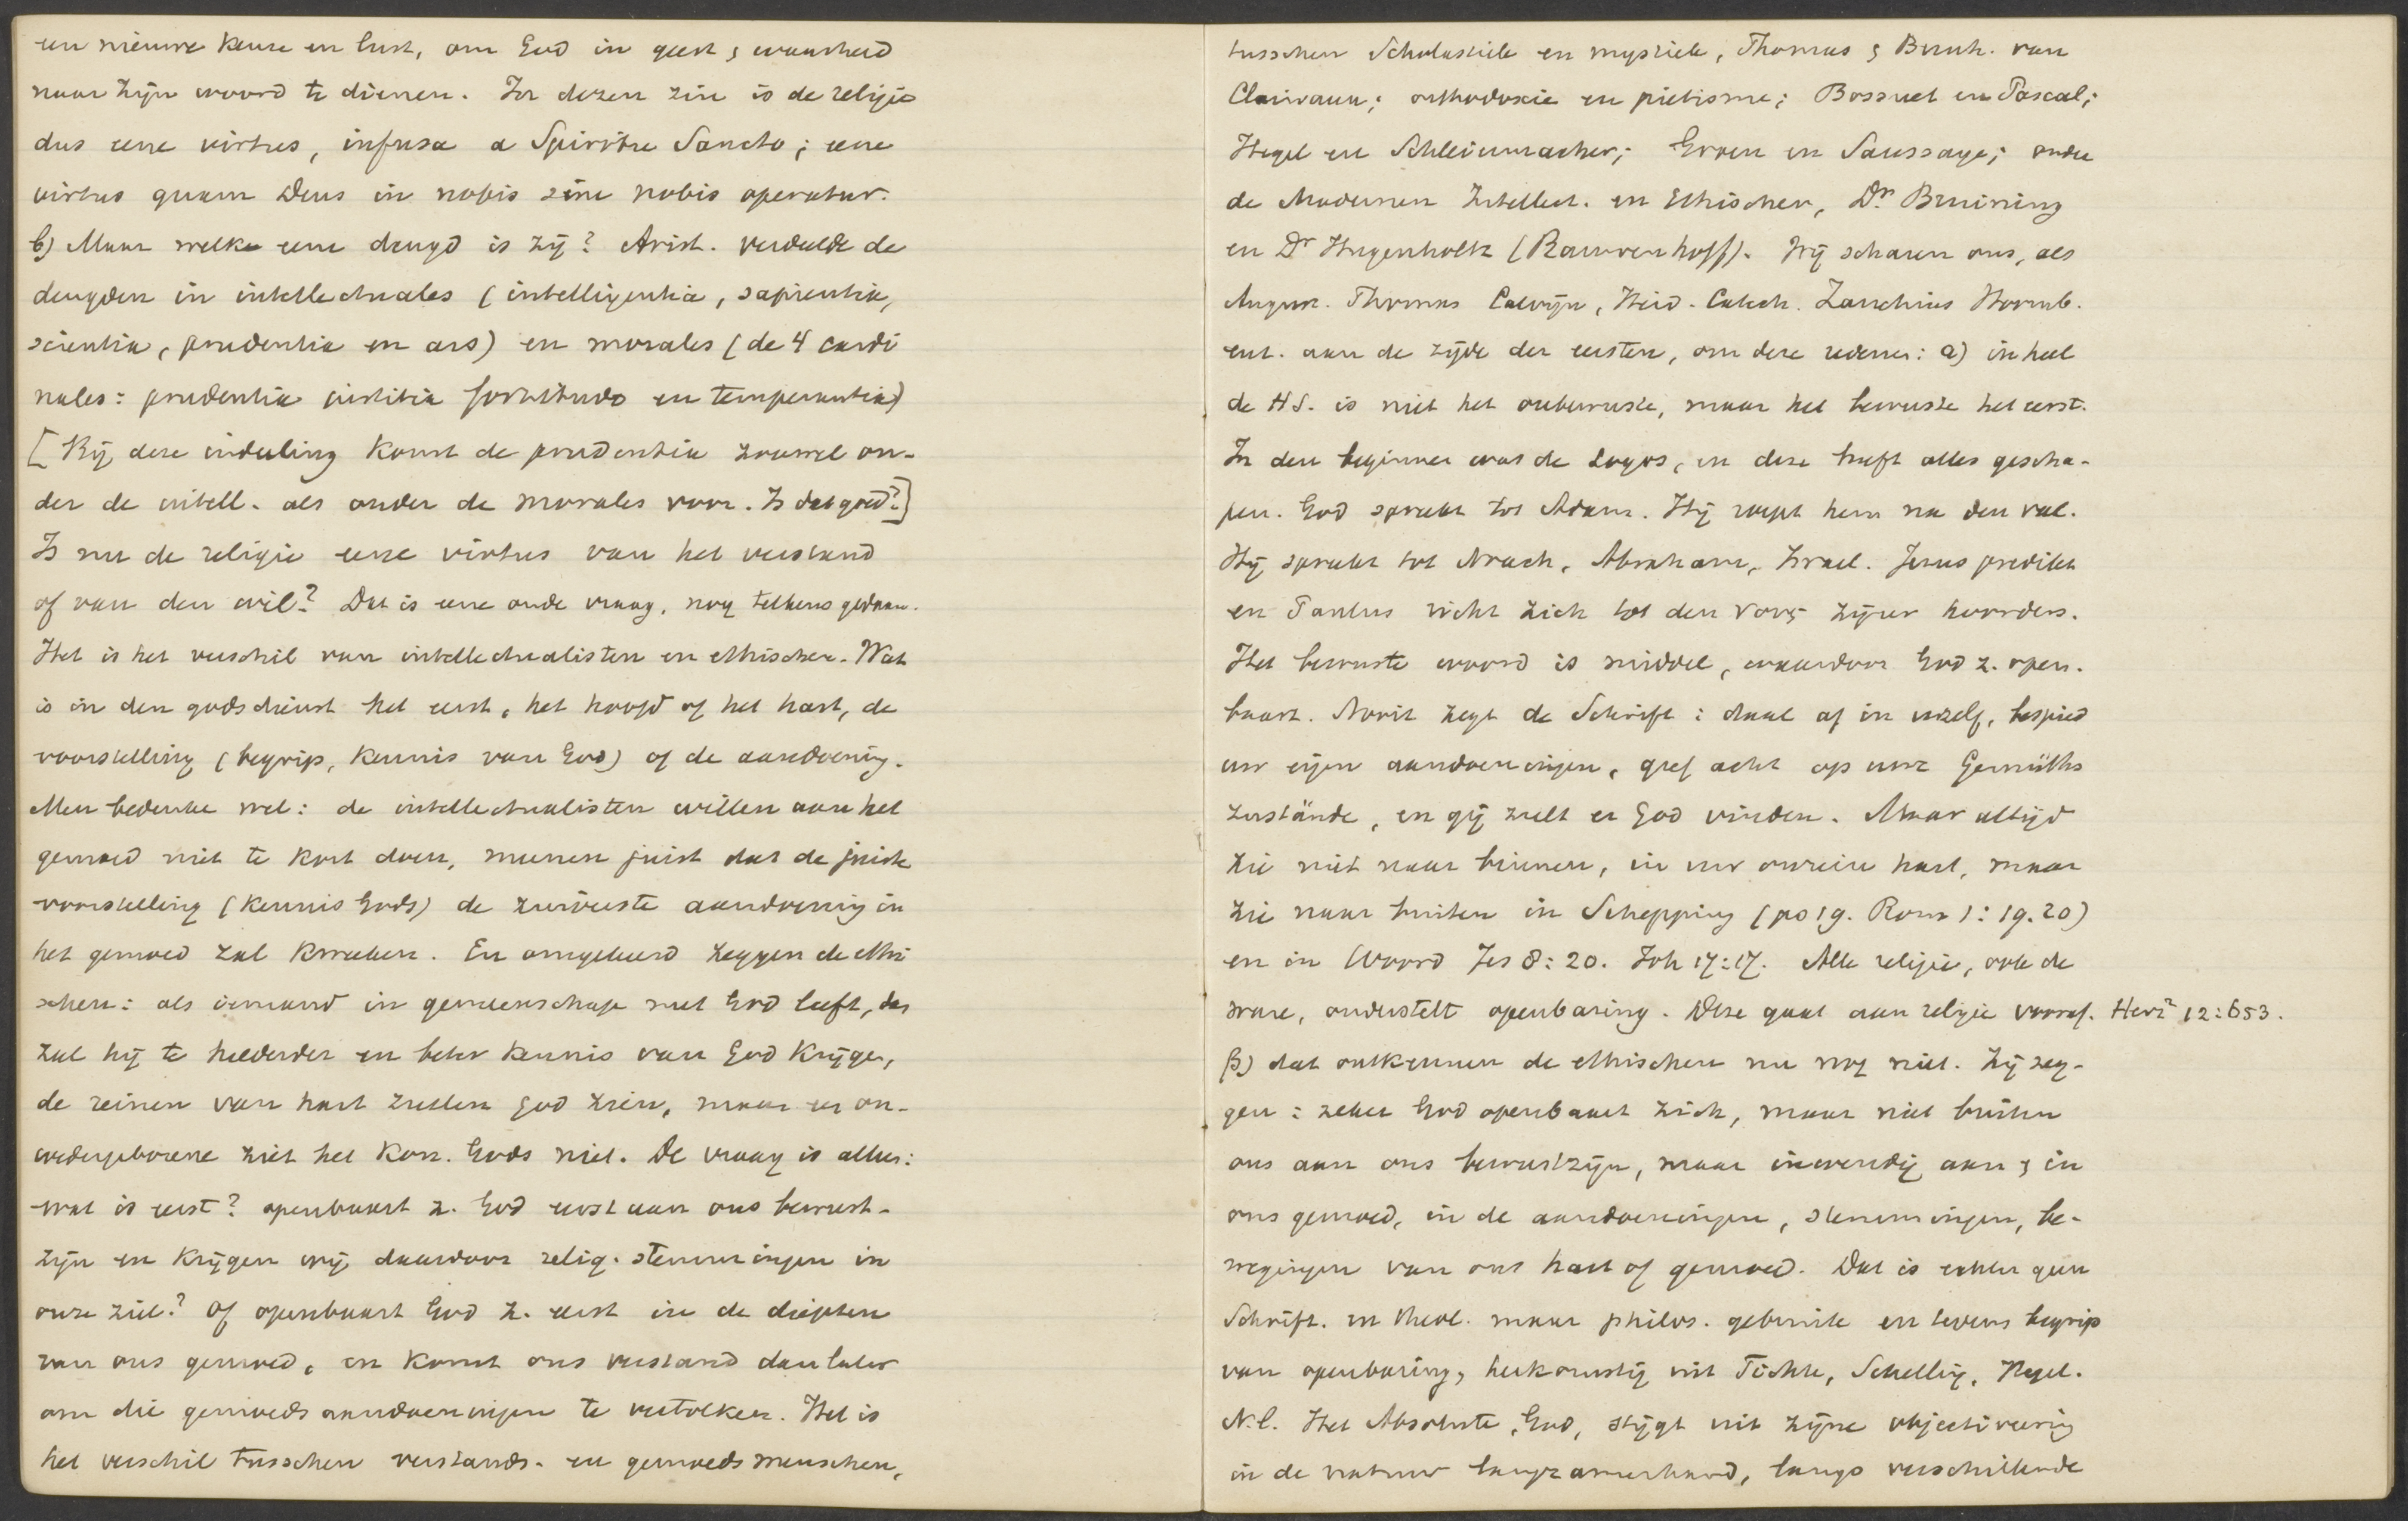 een nieuwe keuze en lust, om God in geest & waarheid
naar Zijn woord te dienen. In dezen zin is de religie
dus eene virtus, infusa a Spiritu Sancto; eene
virtus quam Deus in nobis sine nobis operatur.
b) Maar welke eene deugd is zij? Arist. verdeelde de
deugden in intellectuales (intelligentia, sapientia,
scientia, prudentia en ars) en morales (de 4 cardi
nales: prudentia justitia fortitudo en temperantia)
[Bij deze indeeling komt de prudentia zoowel on-
der de intell. als onder de morales voor. Is dat goed?]
Is nu de religie eene virtus van het verstand
of van den wil? Dat is eene oude vraag, nog telkens gedaan.
Het is het verschil van intellectualisten en ethischen. Wat
is in den godsdienst het eerst, het hoofd of het hart, de
voorstelling (begrip, kennis van God) of de aandoening.
Men bedenke wel: de intellectualisten willen aan het
gemoed niet te kort doen, meenen juist dat de juiste
voorstelling (kennis Gods) de zuiverste aandoening in
het gemoed zal kweeken. En omgekeerd zeggen de ethi
schen: als iemand in gemeenschap met God leeft, dan
zal hij te helderder en beter kennis van God krijgen,
de reinen van hart zullen God zien, maar een on-
wedergeborene ziet het Kon. Gods niet. De vraag is alleen:
wat is eerst? openbaart z. God eerst aan ons bewust-
zijn en krijgen wij daardoor relig. stemmingen in
onze ziel? Of openbaart God z. eerst in de diepten
van ons gemoed, en komt ons verstand dan later
om die gemoedsaandoeningen te vertolken. Het is
het verschil tusschen verstands- en gemoedsmenschen,
tusschen Scholastiek en mystiek, Thomas & Bernh. van
Clairvaux; orthodoxie en pietisme; Bossuet en Pascal;
Hegel en Schleiermacher; Groen en Saussaye; onder
de Modernen Intellect. en Ethischen, Dr. Bruining
en Dr Hugenholtz (Rauwenhoff). Wij scharen ons, als
August. Thomas Calvijn, Heid. Catech. Zanchius Hoornb.
enz. aan de zijde der eersten, om deze redenen: a) in heel
de HS. is niet het onbewuste, maar het bewuste het eerst.
In den beginne was de Logos, en deze heeft alles gescha-
pen. God spreekt tot Adam. Hij roept hem na den val.
Hij spreekt tot Noach, Abraham, Israel. Jezus predikt
en Paulus richt zich tot den νους zijner hoorders.
Het bewuste woord is middel, waardoor God z. open-
baart. Nooit zegt de Schrift: daal af in uzelf, bespied
uw eigen aandoeningen, geef acht op uwe Gemüths
zustände, en gij zult er God vinden. Maar altijd
zie niet naar binnen, in uw onrein hart, maar
zie naar buiten in Schepping (ps 19. Rom 1:19.20)
en in Woord Jes 8:20. Joh 17:17. Alle religie, ook de
ware, onderstelt openbaring. Deze gaat aan religie vooraf. Herz² 12:653.
β) dat ontkennen de ethischen nu nog niet. Zij zeg-
gen: zeker God openbaart zich, maar niet buiten
ons aan ons bewustzijn, maar inwendig aan & in
ons gemoed, in de aandoeningen, stemmingen, be-
wegingen van ons hart of gemoed. Dat is echter geen
Schrift. en theol. maar philos. gebruik en tevens begrip
van openbaring, herkomstig uit Fichte, Schelling, Hegel.
N.l. Het Absolute, God, stijgt uit zijne objectiveering
in de natuur langzamerhand, langs verschillende